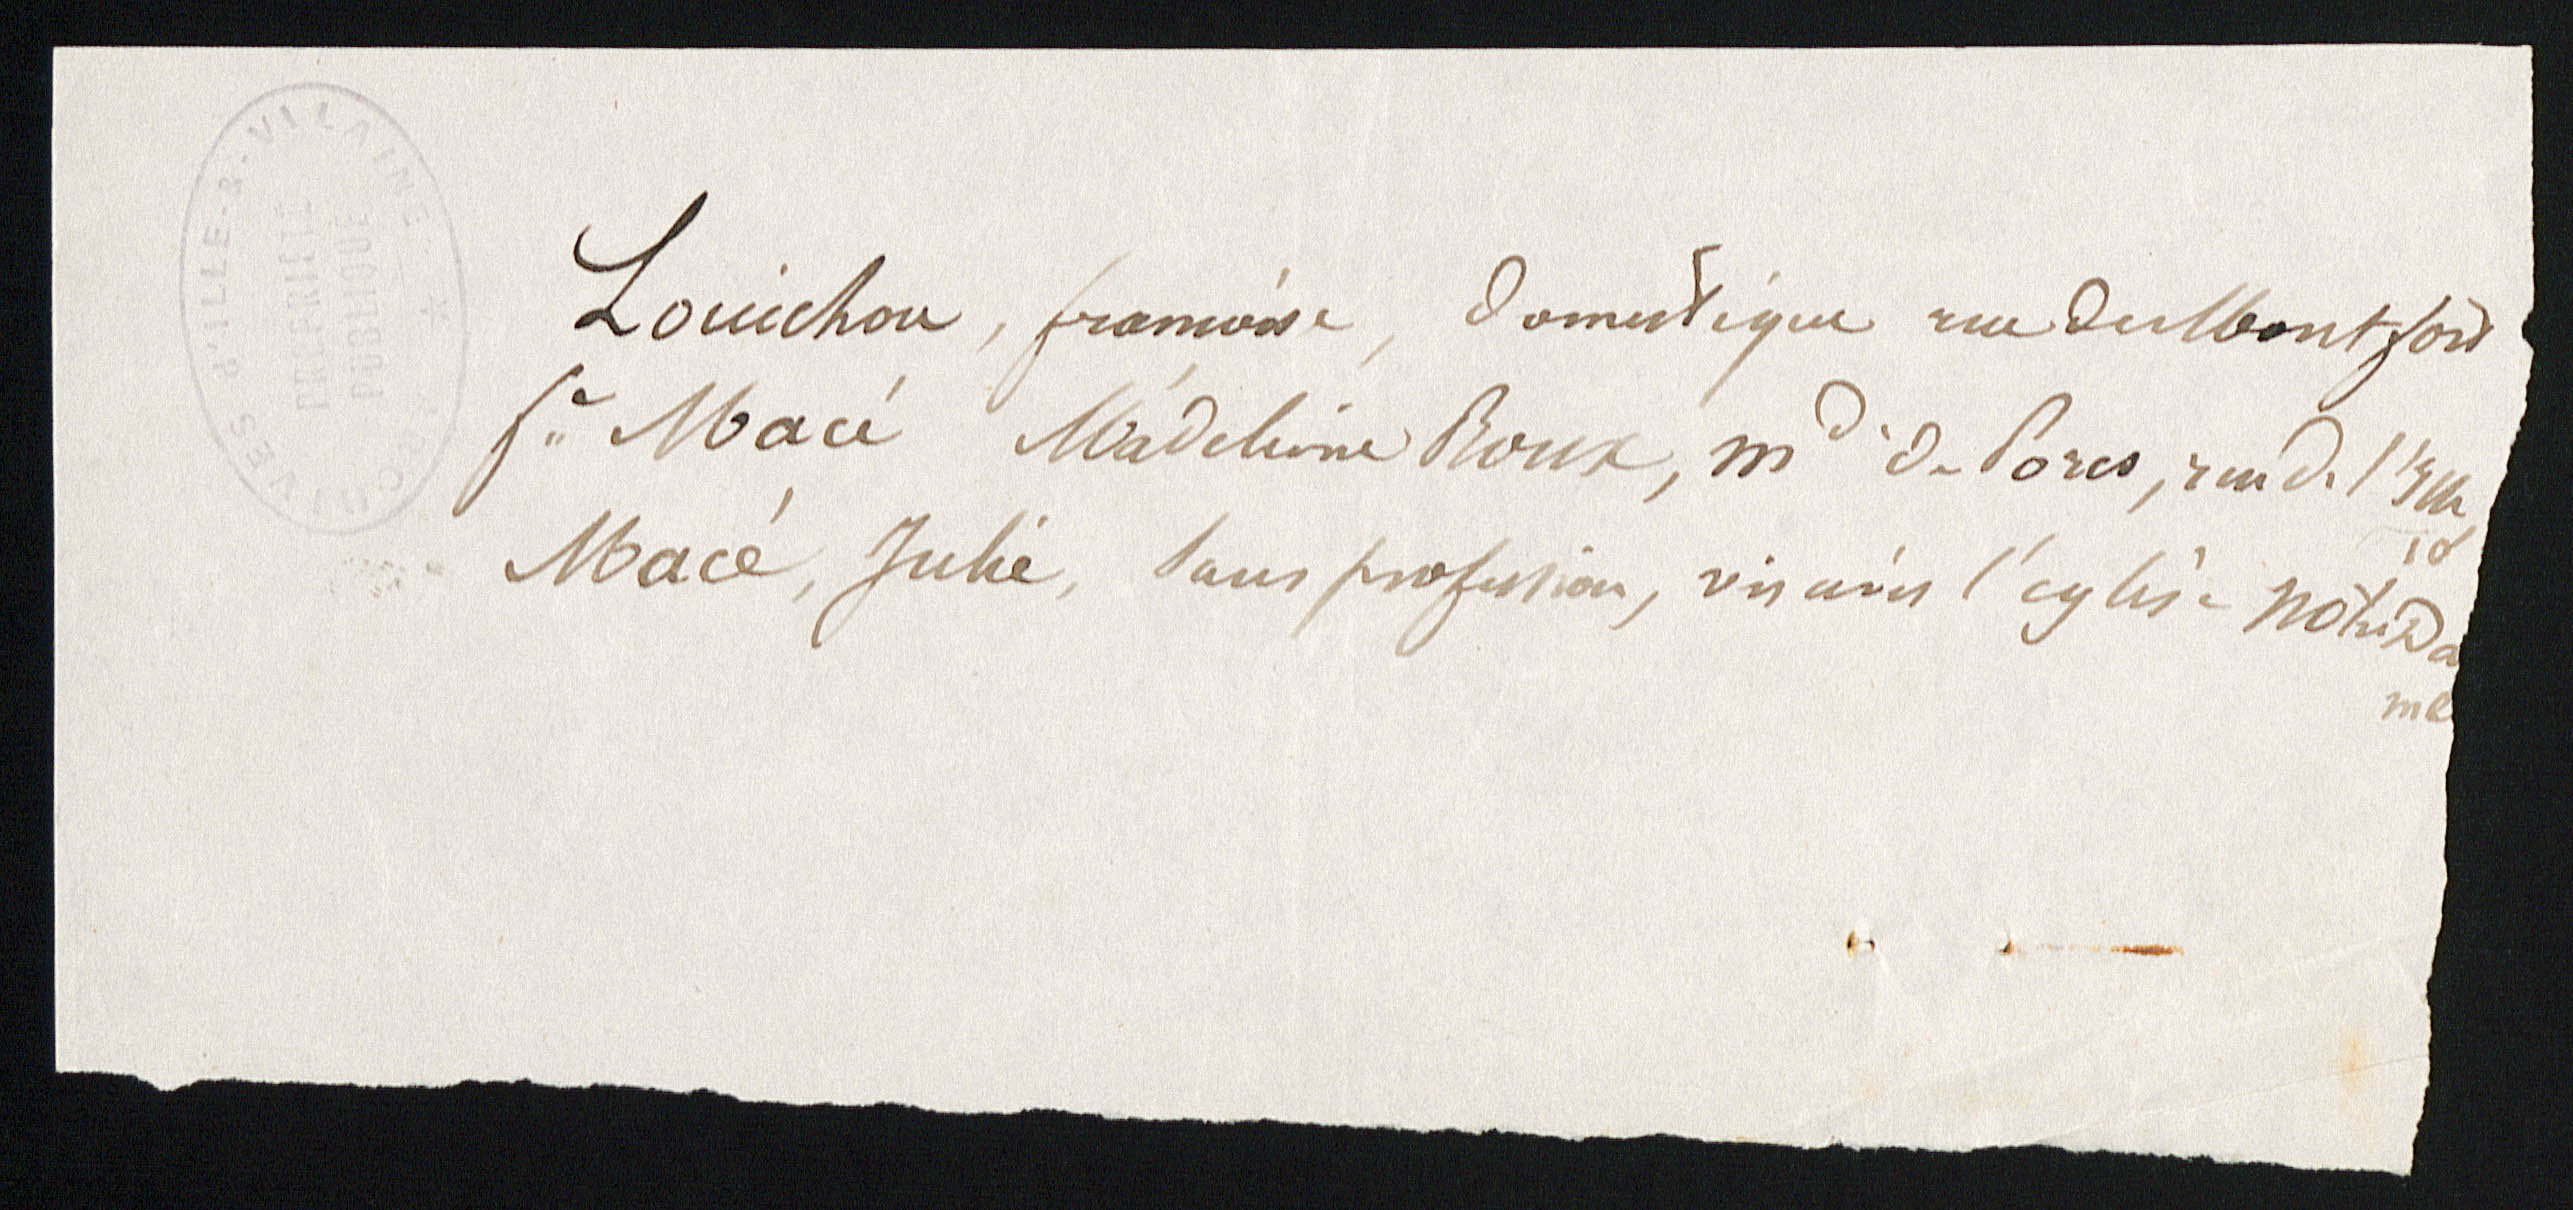 ARCHIVES d'ILLE-&-VILAINE
PROPRIETE
PUBLIQUE
Louichon, francoise, domestique rue de Montfort
fe Macé Madeleine Roux, md de Porcs, rue de l'
Macé, Julie, sans profession, vis avis l'eglise Notre Da
me